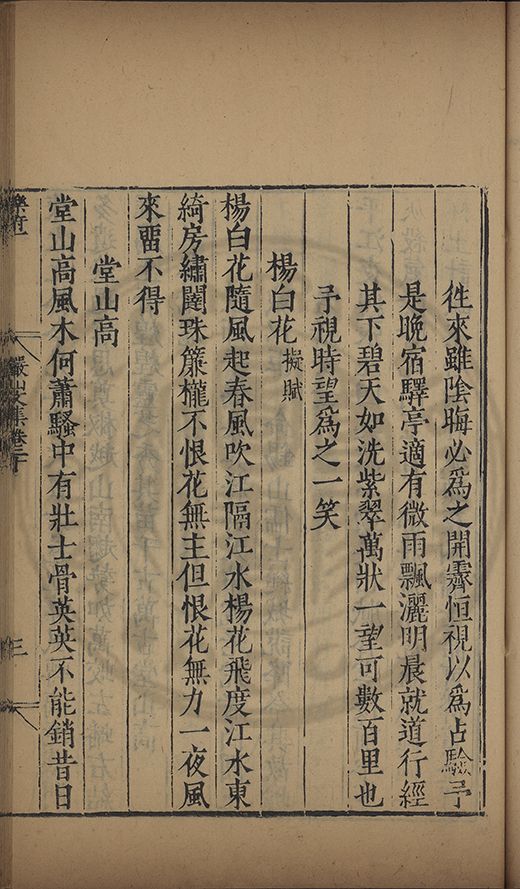 徃來雖陰晦必爲之開霽恒視以爲占驗予
是晚宿驛亭適有微雨飄灑明晨就道行經
其下碧天如洗紫翠萬狀一望可數百里也
予視時望爲之一笑
楊白花擬賦
楊白花隨風起春風吹江隔江水楊花飛度江水東
綺房繡闥珠簾櫳不恨花無主但恨花無力一夜風
來畱不得
堂山高
堂山高風木何蕭騷中有壯士骨英英不能銷昔日
儼山文集卷二十
三